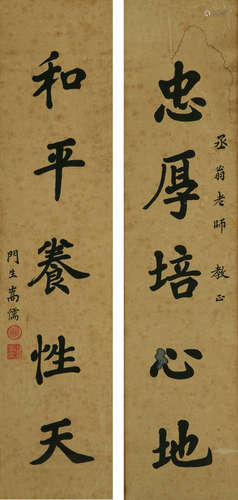 忠厚培心地
丞翁老師 教正
和平養性天
門生嵩儒